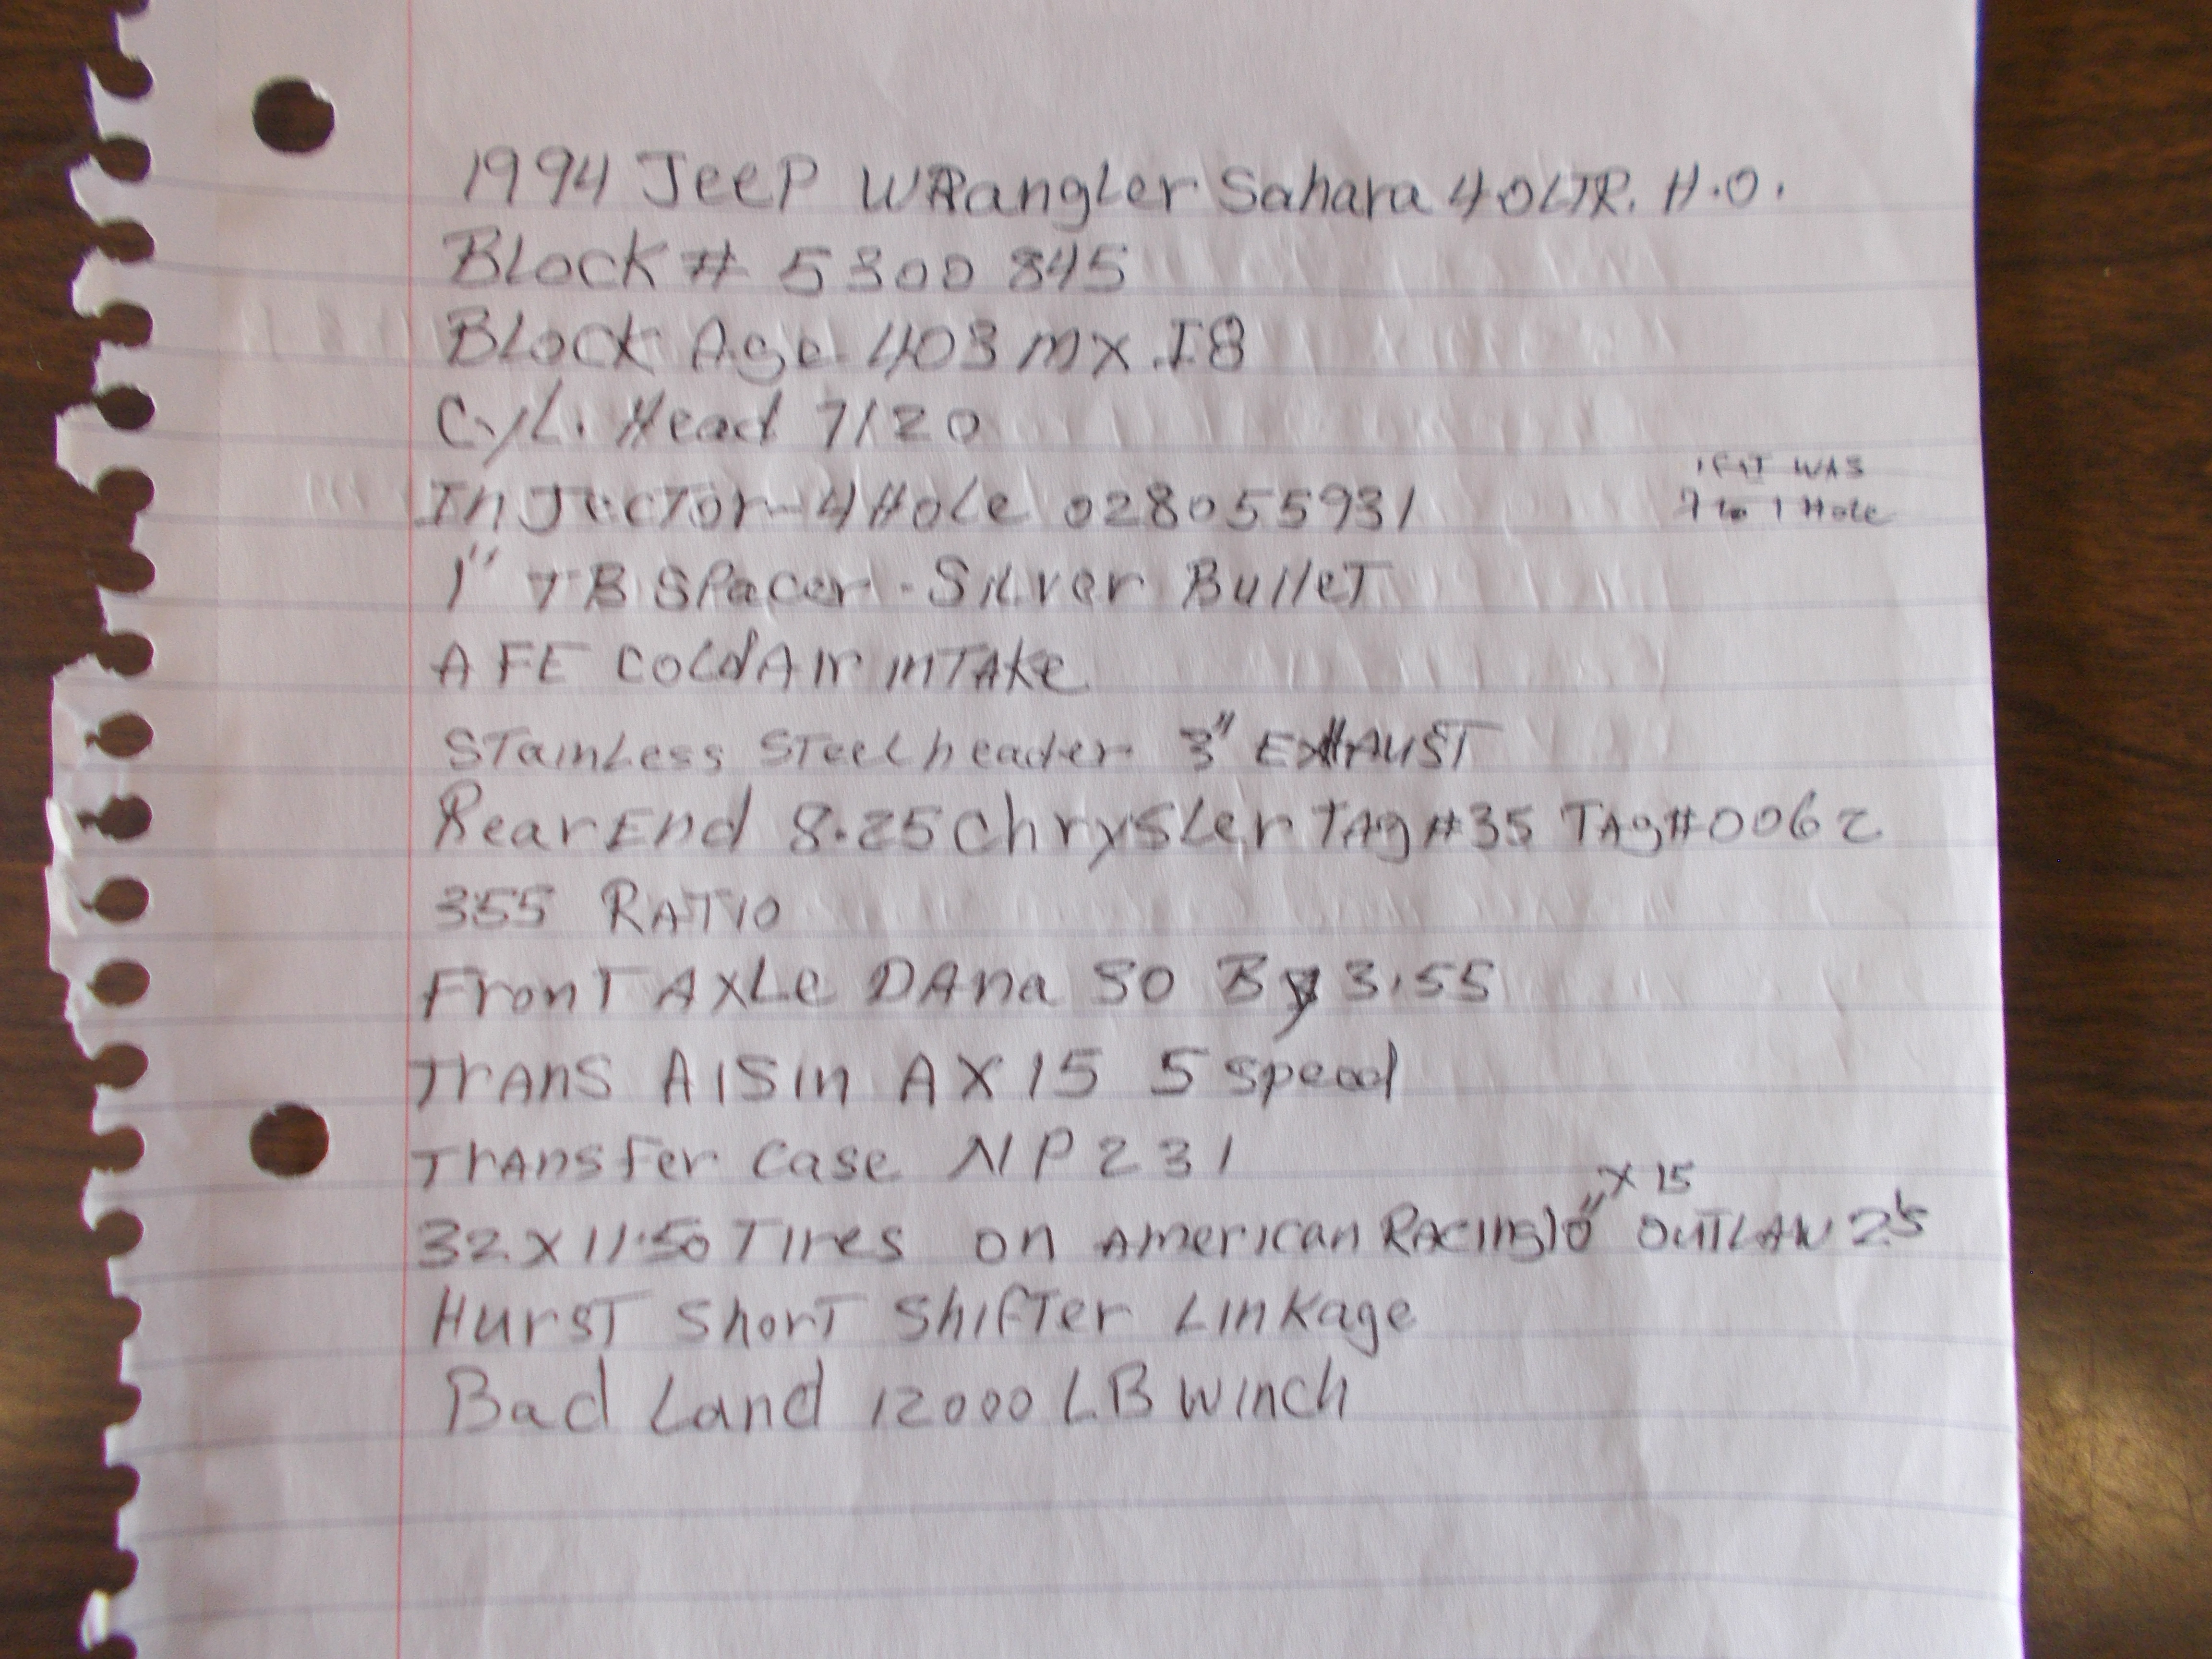 1994 Jeep Wrangler Sahara 4.0 LTR. H.O.
Block # 5300 845
Block Age 403 MX 18
Cyl. Head 7120
Injector - 4 Hole 028055931
was
to 1 Hole
1" TB Spacer - Silver Bullet
AFE Cold Air intake
Stainless Steel header 3" Exhaust
Rear End 8.25 Chrysler Tag #35 Tag #0062
355 Ratio
Front Axle Dana 30 By 3.55
Trans Aisin AX 15 5 speed
Transfer Case NP 231
32 x 11.50 Tires on American Racing 10" x 15 Outlaw 2's
Hurst Short Shifter Linkage
Bad Land 12000 LB winch